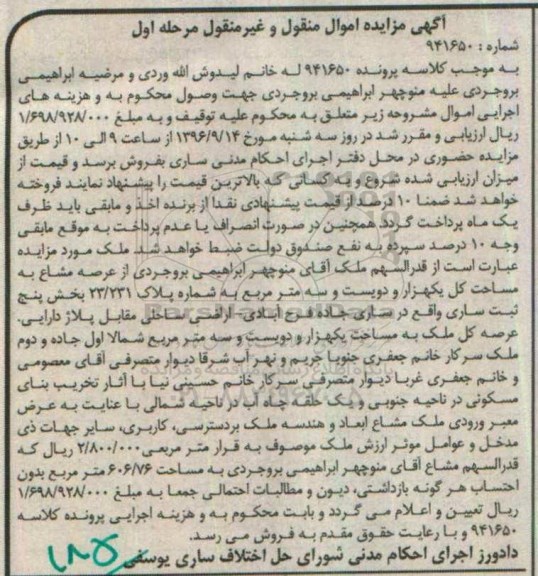 آگهی مزایده اموال منقول و غیرمنقول مرحله اول
شماره : ۹۴۱۶۵۰
به موجب کلاسه پرونده ۹۴۱۶۵۰ له خانم لیدوش الله وردی و مرضیه ابراهیمی
بروجردی علیه منوچهر ابراهیمی بروجردی جهت وصول محکوم به و هزینه های
اجرایی اموال مشروحه زیر متعلق به محکوم علیه توقیف و به مبلغ ۱/۶۹۸/۹۲۸/۰۰۰
ریال ارزیابی و مقرر شد در روز سه شنبه مورخ ۱۳۹۶/۹/۱۴ از ساعت ۹ الی ۱۰ از طریق
مزایده حضوری در محل دفتر اجرای احکام مدنی ساری بفروش برسد و قیمت از
میزان ارزیابی شده شروع و به کسانی که بالاترین قیمت را پیشنهاد نمایند فروخته
خواهد شد ضمنا ۱۰ درصد از قیمت پیشنهادی نقدا از برنده اخذ و مابقی باید ظرف
یک ماه پرداخت گردد. همچنین در صورت انصراف یا عدم پرداخت به موقع مابقی
وجه ۱۰ درصد سپرده به نفع صندوق دولت ضبط خواهد شد. ملک مورد مزایده
عبارت است از قدرالسهم ملک آقای منوچهر ابراهیمی بروجردی از عرصه مشاع به
مساحت کل یکهزار و دویست و سه متر مربع به شماره پلاک ۲۳/۲۳۱ بخش پنج
ثبت ساری واقع در ساری جاده فرح آبادی- اراضی ساحلی مقابل پلاژ دارایی.
عرصه کل ملک به مساحت یکهزار و دویست و سه متر مربع شمالا اول جاده و دوم
ملک سرکار خانم جعفری جنوبا حریم و نهر آب شرقا دیوار متصرفی آقای معصومی
و خانم جعفری غربا دیوار متصرفی سرکار خانم حسینی نیا با آثار تخریب بنای
مسکونی در ناحیه جنوبی و یک حلقه چاه آب در ناحیه شمالی با عنایت به عرض
معبر ورودی ملک مشاع ابعاد و هندسه ملک بردسترسی، کاربری، سایر جهات ذی
مدخل و عوامل موثر ارزش ملک موصوف به قرار متر مربعی ۲/۸۰۰/۰۰۰ ریال که
قدرالسهم مشاع آقای منوچهر ابراهیمی بروجردی به مساحت ۶۰۶/۷۶ متر مربع بدون
احتساب هر گونه بازداشتی، دیون و مطالبات احتمالی جمعا به مبلغ ۱/۶۹۸/۹۲۸/۰۰۰
ریال تعیین و اعلام می گردد و بابت محکوم به و هزینه اجرایی پرونده کلاسه
۹۴۱۶۵۰ و با رعایت حقوق مقدم به فروش می رسد.
دادورز اجرای احکام مدنی شورای حل اختلاف ساری یوسفی